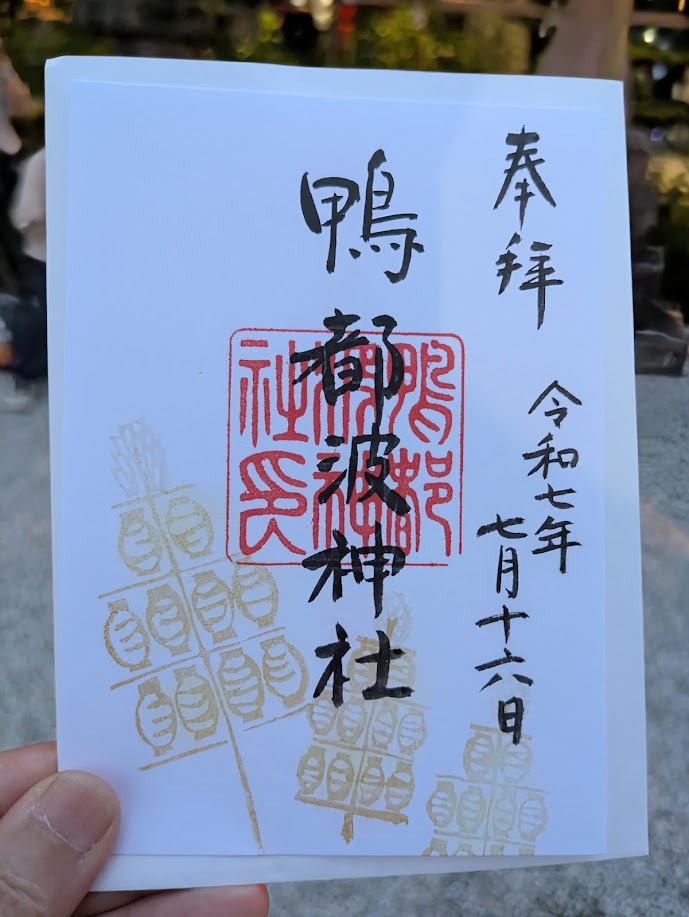 奉拝
令和七年
七月十六日
鴨都波神社
鴨都波神社印